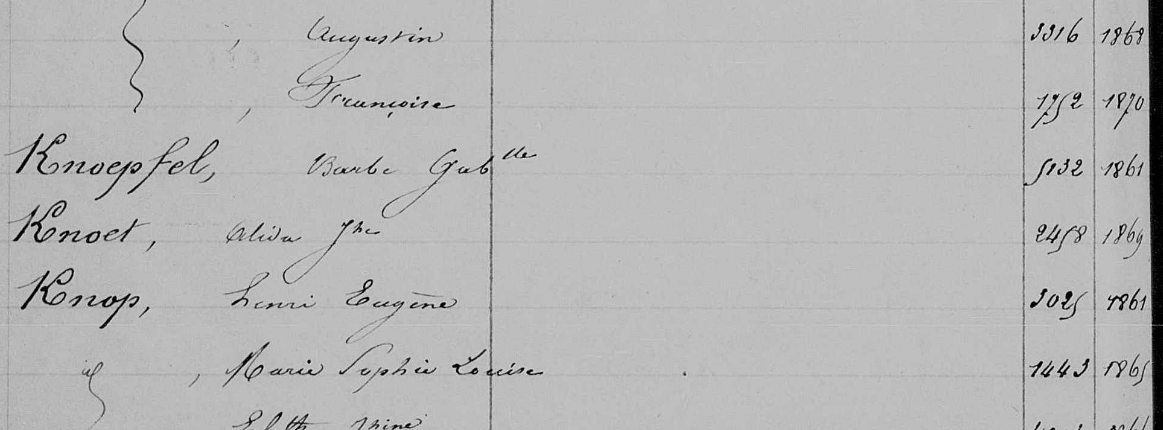 , Augustin 3316 1868
, Françoise 1752 1870
Knoepfel, Barbe Gab^lle 5132 1861
Knoet, Alida J^ne 2458 1869
Knop, henri Eugène 3025 1861
id , Marie Sophie Louise 1443 1865